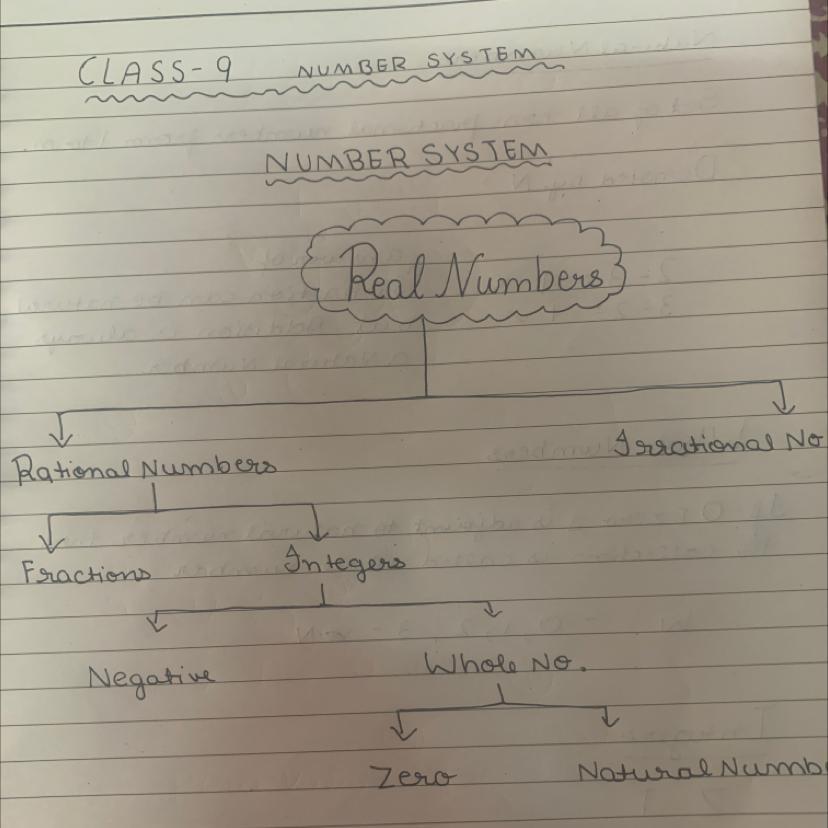 CLASS-9 NUMBER SYSTEM
NUMBER SYSTEM
Real Numbers
Irrational No
Rational Numbers
Fractions Integers
Negative Whole No.
Zero Natural Numb